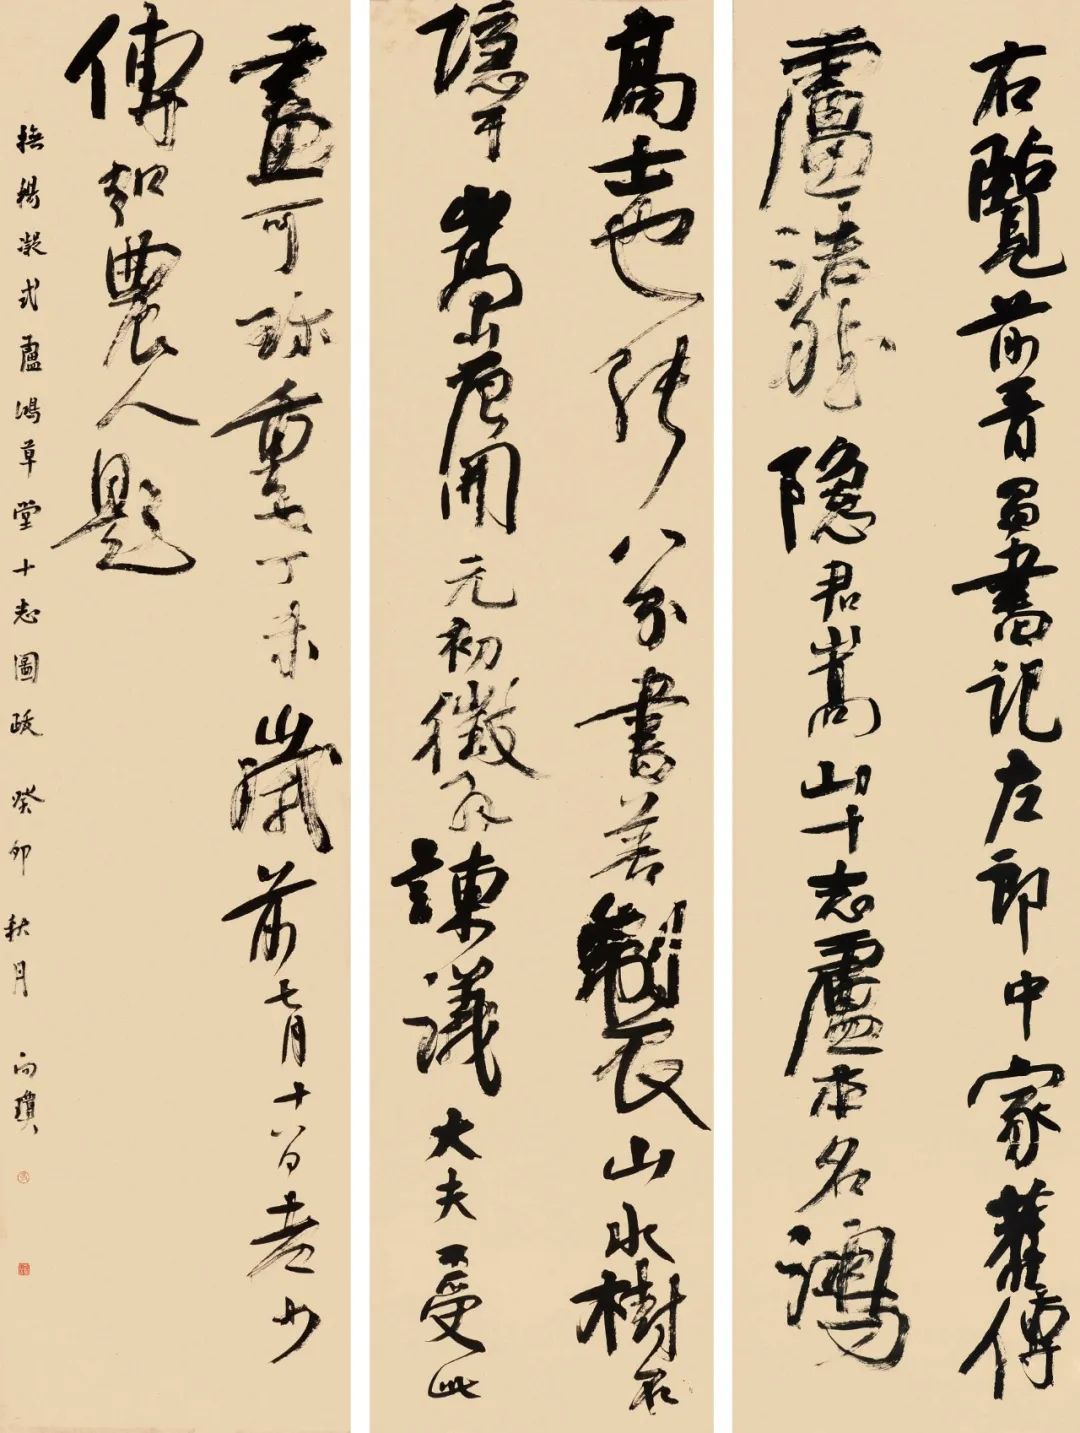 右覽前晉昌書記左郎中家舊傳
盧浩然隱君嵩山十志盧本名鴻
高士也能八分書善製山水樹石
隱於嵩山唐開元初徵拜諫議大夫不受此
畫可珍重也丁未歲前七月十八日老少
傅弘農人題
橅楊凝式盧鴻草堂十志圖跋 癸卯 秋月 向瓊